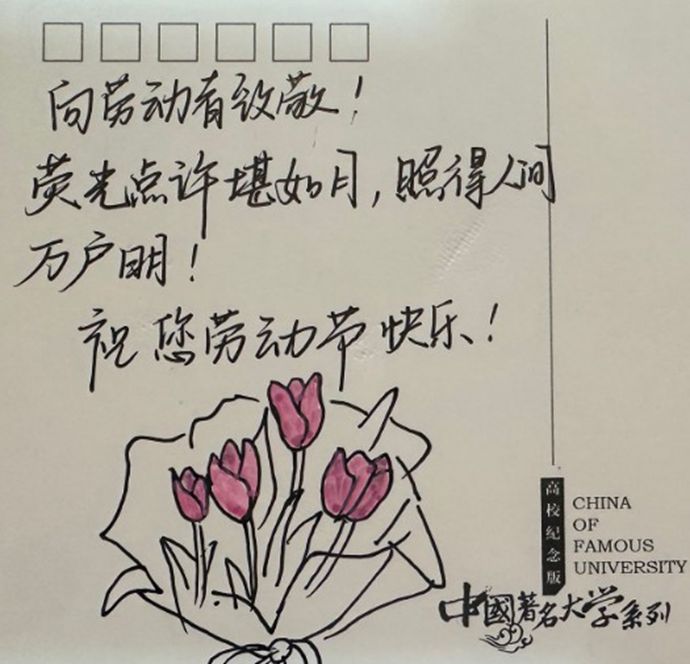 向劳动者致敬！
荧光点许堪如月，照得人间
万户明！
祝您劳动节快乐！
高校纪念版
CHINA
OF
FAMOUS
UNIVERSITY
中國著名大学系列